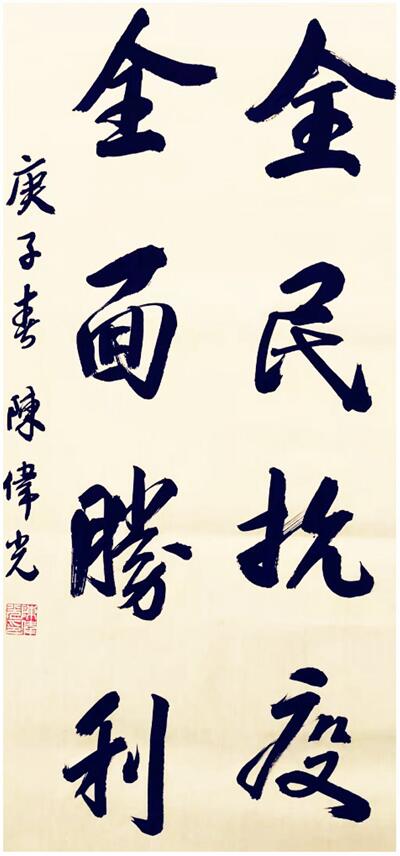 全民抗疫
全面勝利
庚子春 陳偉光